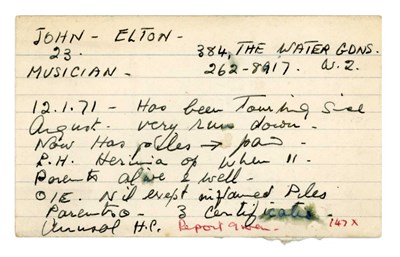 JOHN - ELTON -
23. 384, THE WATER GDNS.
MUSICIAN - 262-8917. W.2
12.1.71 - Has been Touring Since
August. very run down -
Now Has piles → pain -
L.H. Hernia op when 11 -
Parents alive & well -
O/E. Nil exept inflamed Piles
3 Certificates -
Unusual H.P. Report given. 147 x